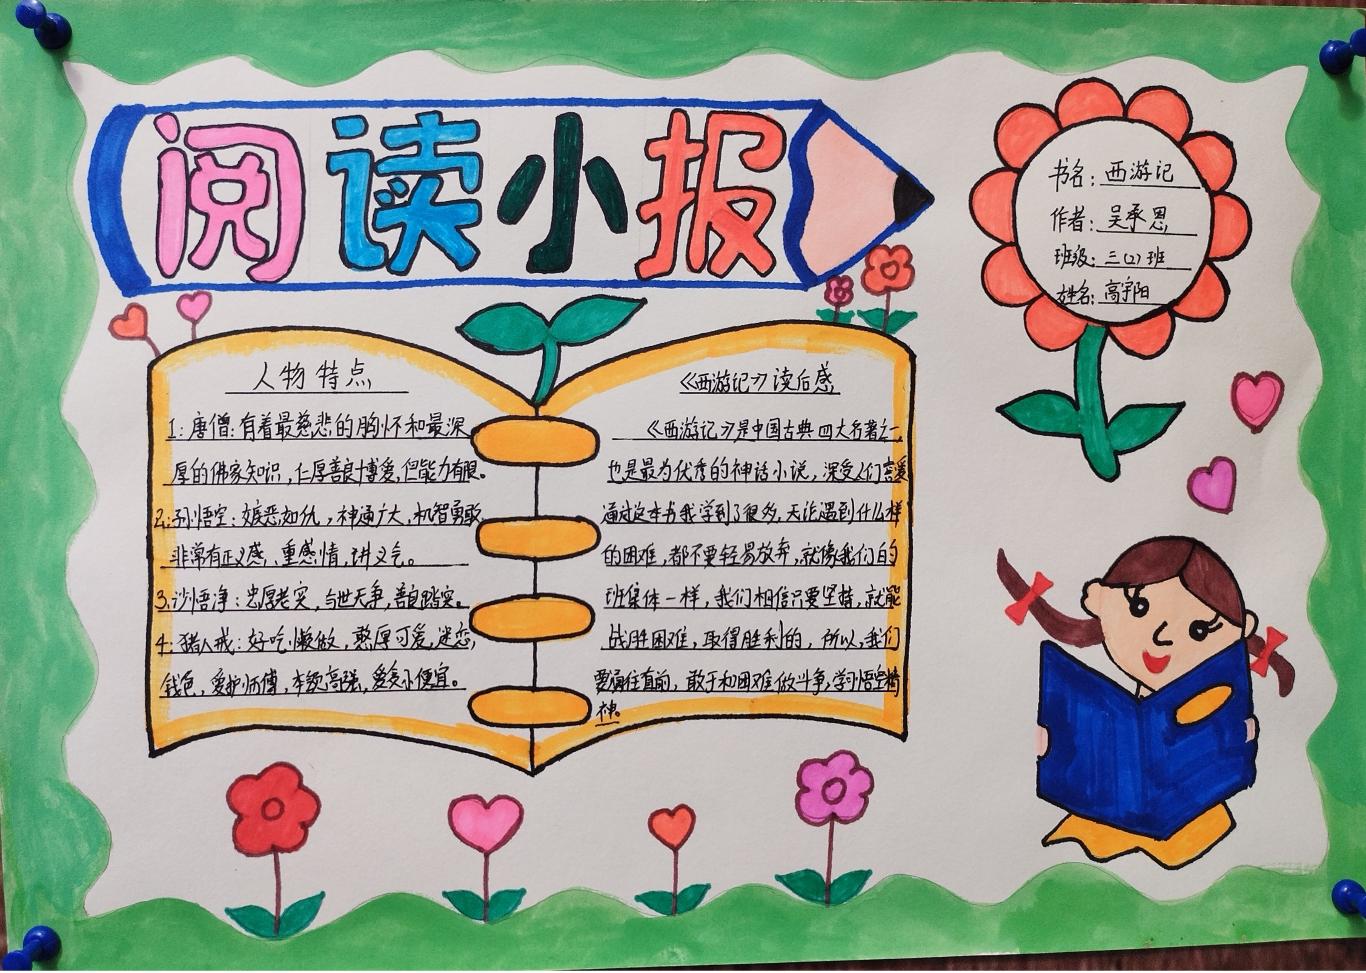 阅读小报
书名：西游记
作者：吴承恩
班级：三(2)班
姓名：高宇阳
人物特点
1：唐僧：有着最慈悲的胸怀和最深
厚的佛家知识，仁厚善良博爱，但能力有限。
2：孙悟空：嫉恶如仇，神通广大，机智勇敢
非常有正义感、重感情，讲义气。
3.沙悟净：忠厚老实，与世无争，善良踏实。
4：猪八戒：好吃懒做，憨厚可爱，迷恋，
钱色，爱护师傅，本领高强，爱贪小便宜。
《西游记》读后感
《西游记》是中国古典四大名著之一，
也是最为优秀的神话小说，深受人们喜爱
通过这本书我学到了很多，无论遇到什么样
的困难，都不要轻易放弃，就像我们的
班集体一样，我们相信只要坚持，就能
战胜困难，取得胜利的，所以，我们
要勇往直前，敢于和困难做斗争，学习悟空精
神。